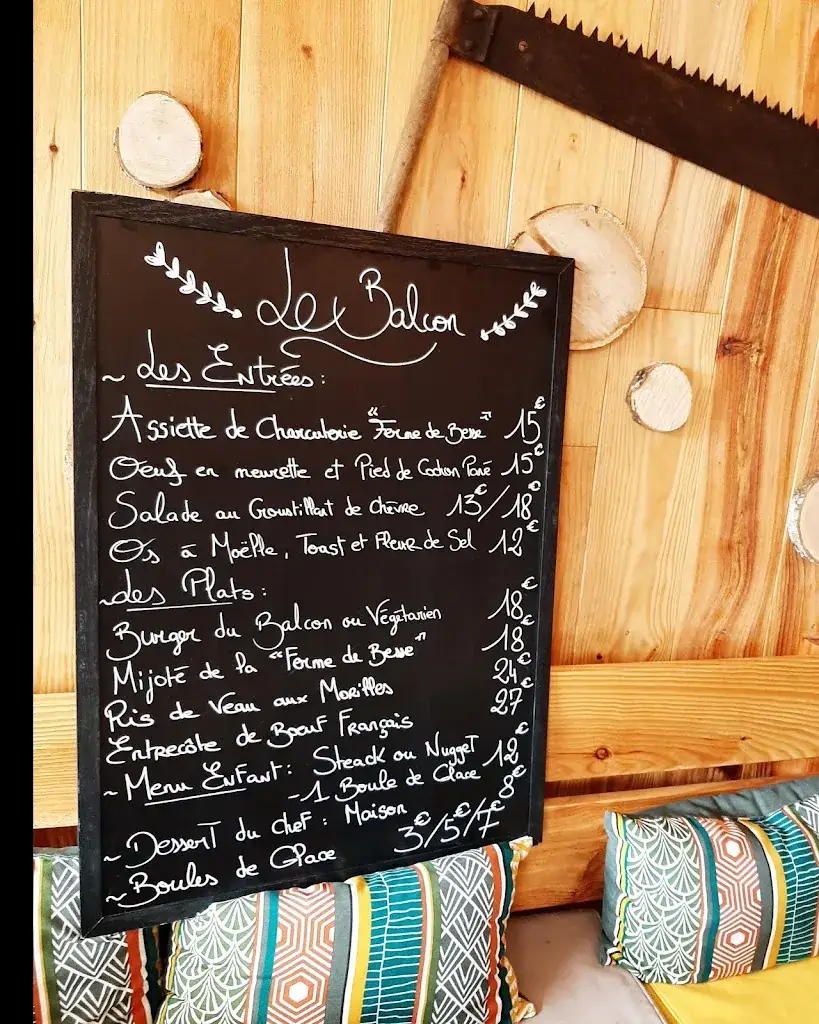 Le Balcon
~ Les Entrées :
Assiette de Charcuterie "Ferme de Besse" 15€
Oeuf en meurette et Pied de Cochon Pané 15€
Salade au Croustillant de chèvre 13€/18€
Os à Moëlle, Toast et Fleur de Sel 12€
~ Les Plats :
Burger du Balcon ou Végétarien 18€
Mijoté de la "Ferme de Besse" 18€
Ris de Veau aux Morilles 24€
Entrecôte de Boeuf Français 27€
~ Menu Enfant : Steack ou Nugget 12€
- 1 Boule de Glace
~ Dessert du chef : Maison 8€
~ Boules de Glace 3€/5€/7€